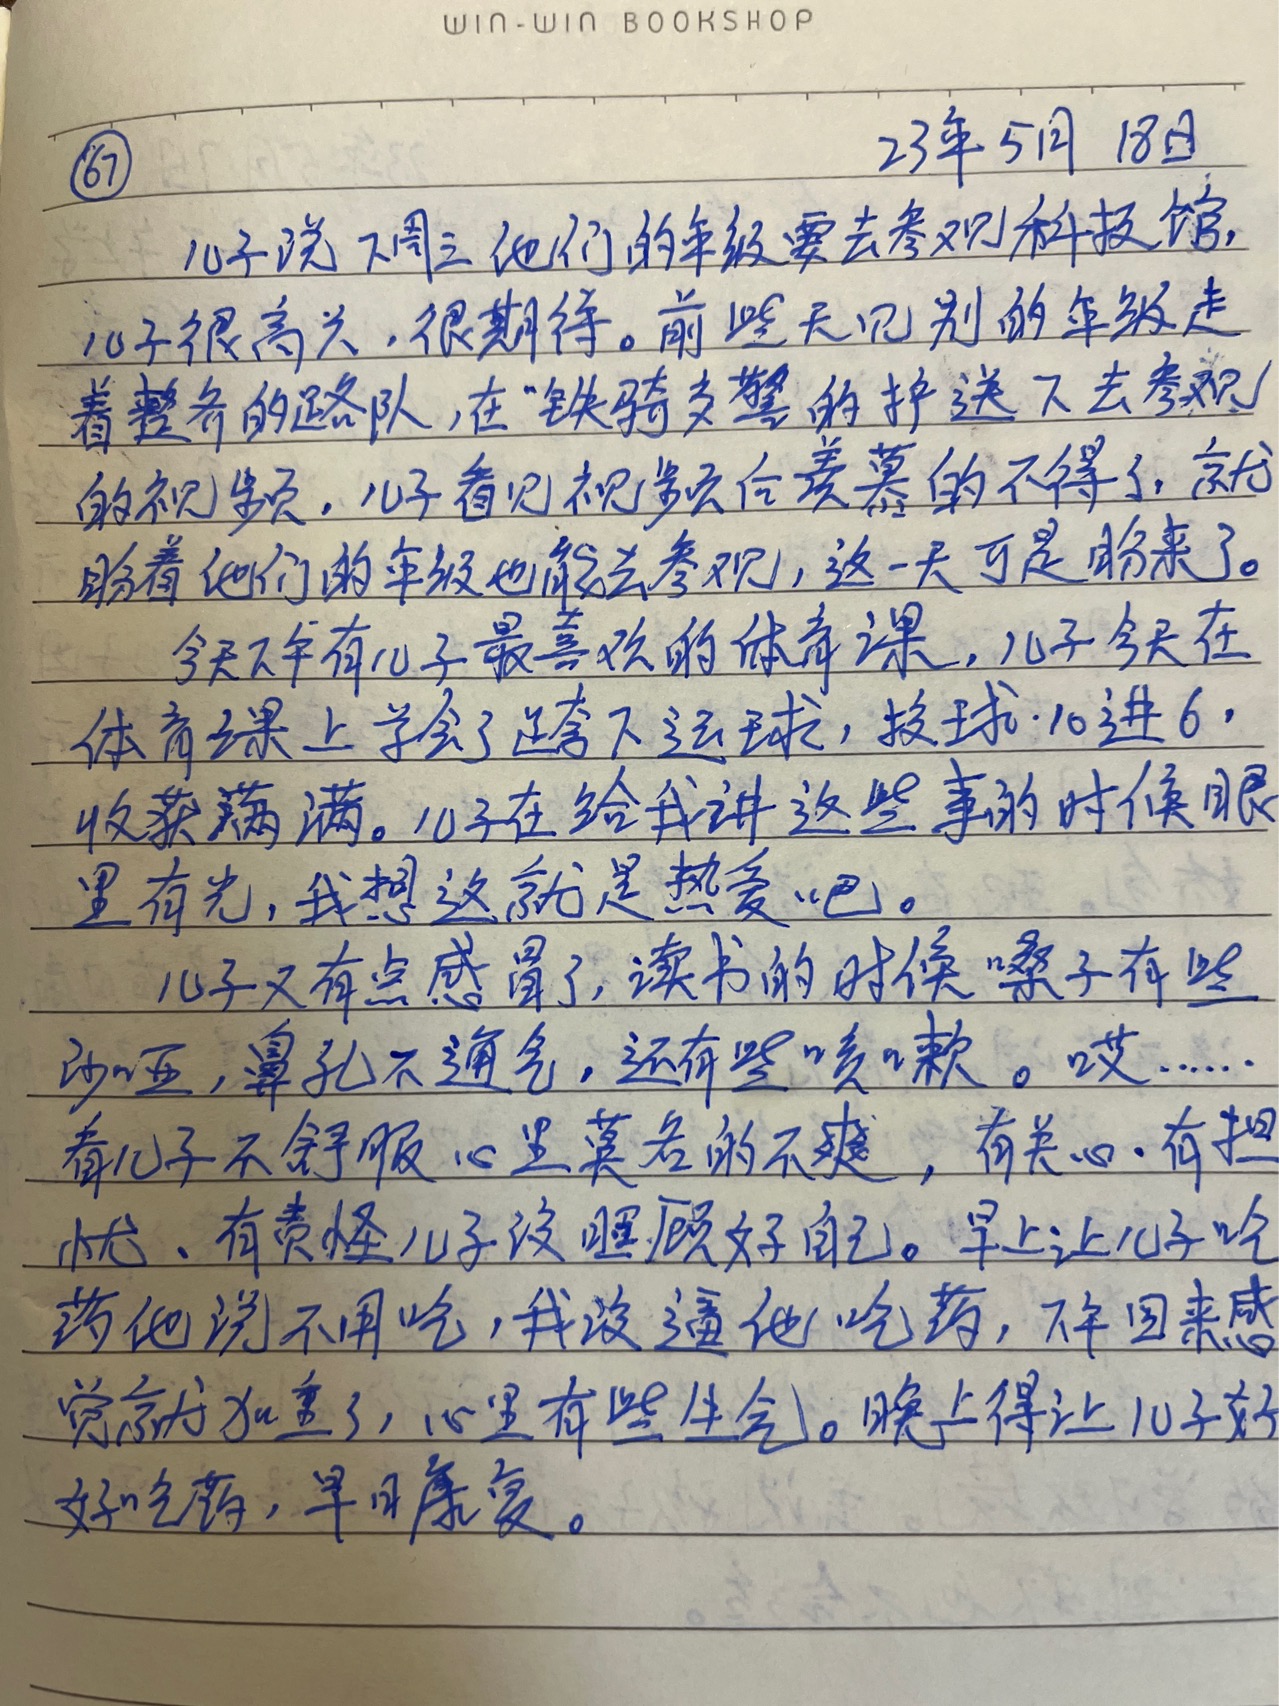 WIN-WIN BOOKSHOP
67 23年5月18日
儿子说下周三他们的年级要去参观科技馆，
儿子很高兴，很期待。前些天见别的年级走
着整齐的路队，在“铁骑交警的护送下去参观
的视频，儿子看见视频后羡慕的不得了，就
盼着他们的年级也能去参观，这一天可是盼来了。
今天下午有儿子最喜欢的体育课，儿子今天在
体育课上学会了跨下运球，投球·10进6，
收获满满。儿子在给我讲这些事的时候眼
里有光，我想这就是热爱吧。
儿子又有点感冒了，读书的时候嗓子有些
沙哑，鼻孔不通气，还有些咳嗽。哎……
看儿子不舒服心里莫名的不爽，有关心、有担
忧、有责怪儿子没照顾好自己。早上让儿子吃
药他说不用吃，我没逼他吃药，下午回来感
觉就加重了，心里有些生气。晚上得让儿子好
好吃药，早日康复。